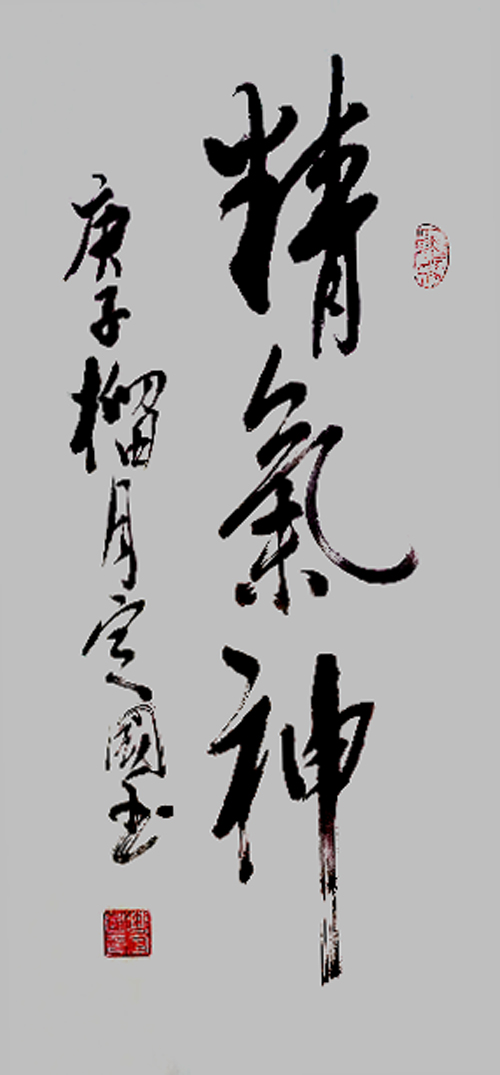 精氣神
庚子榴月定國书